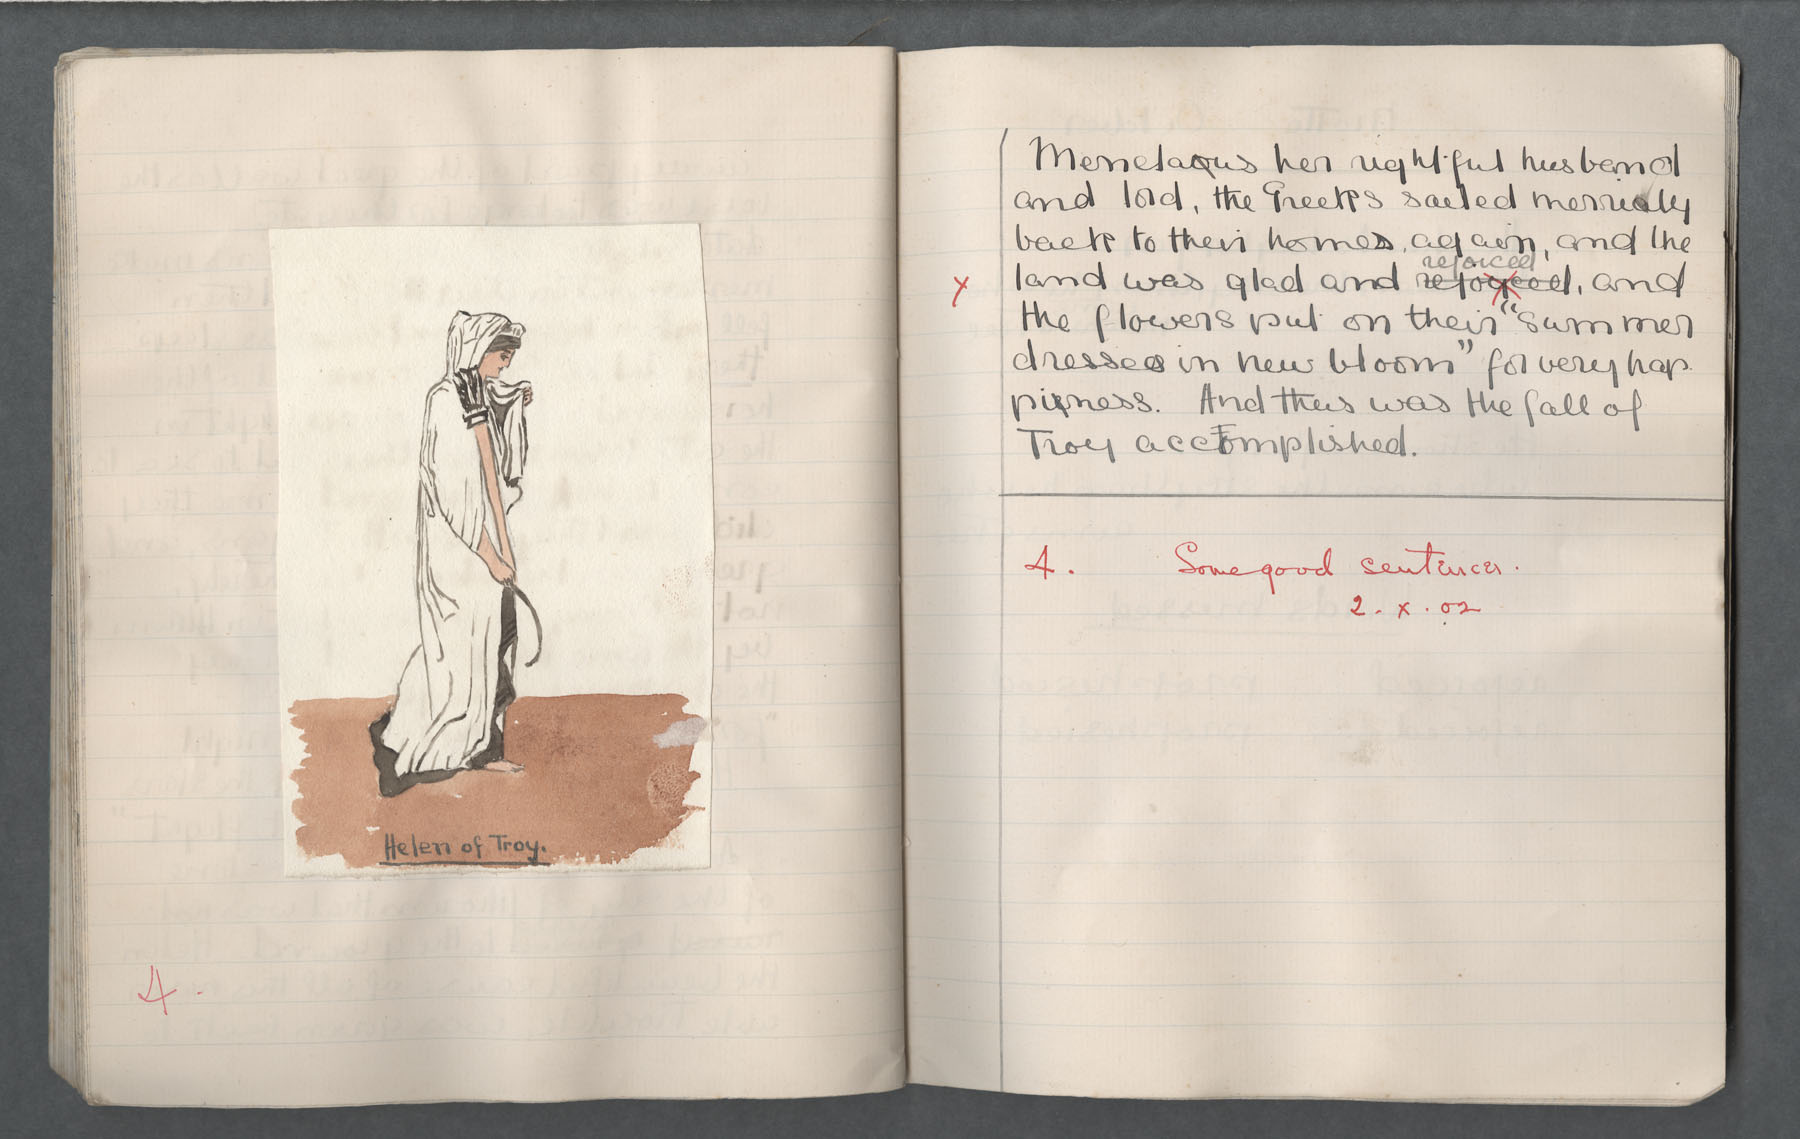 Helen of Troy.
A.
Menelaous her rightful husband
and lord, the Greeks sailed merrily
back to their homes again, and the
rejoiced
x land was glad and rejoyced, and
the flowers put on their "summer
dresses in new bloom" for very hap
piness. And thus was the fall of
Troy accomplished.
A. Some good sentences.
2. x. 02